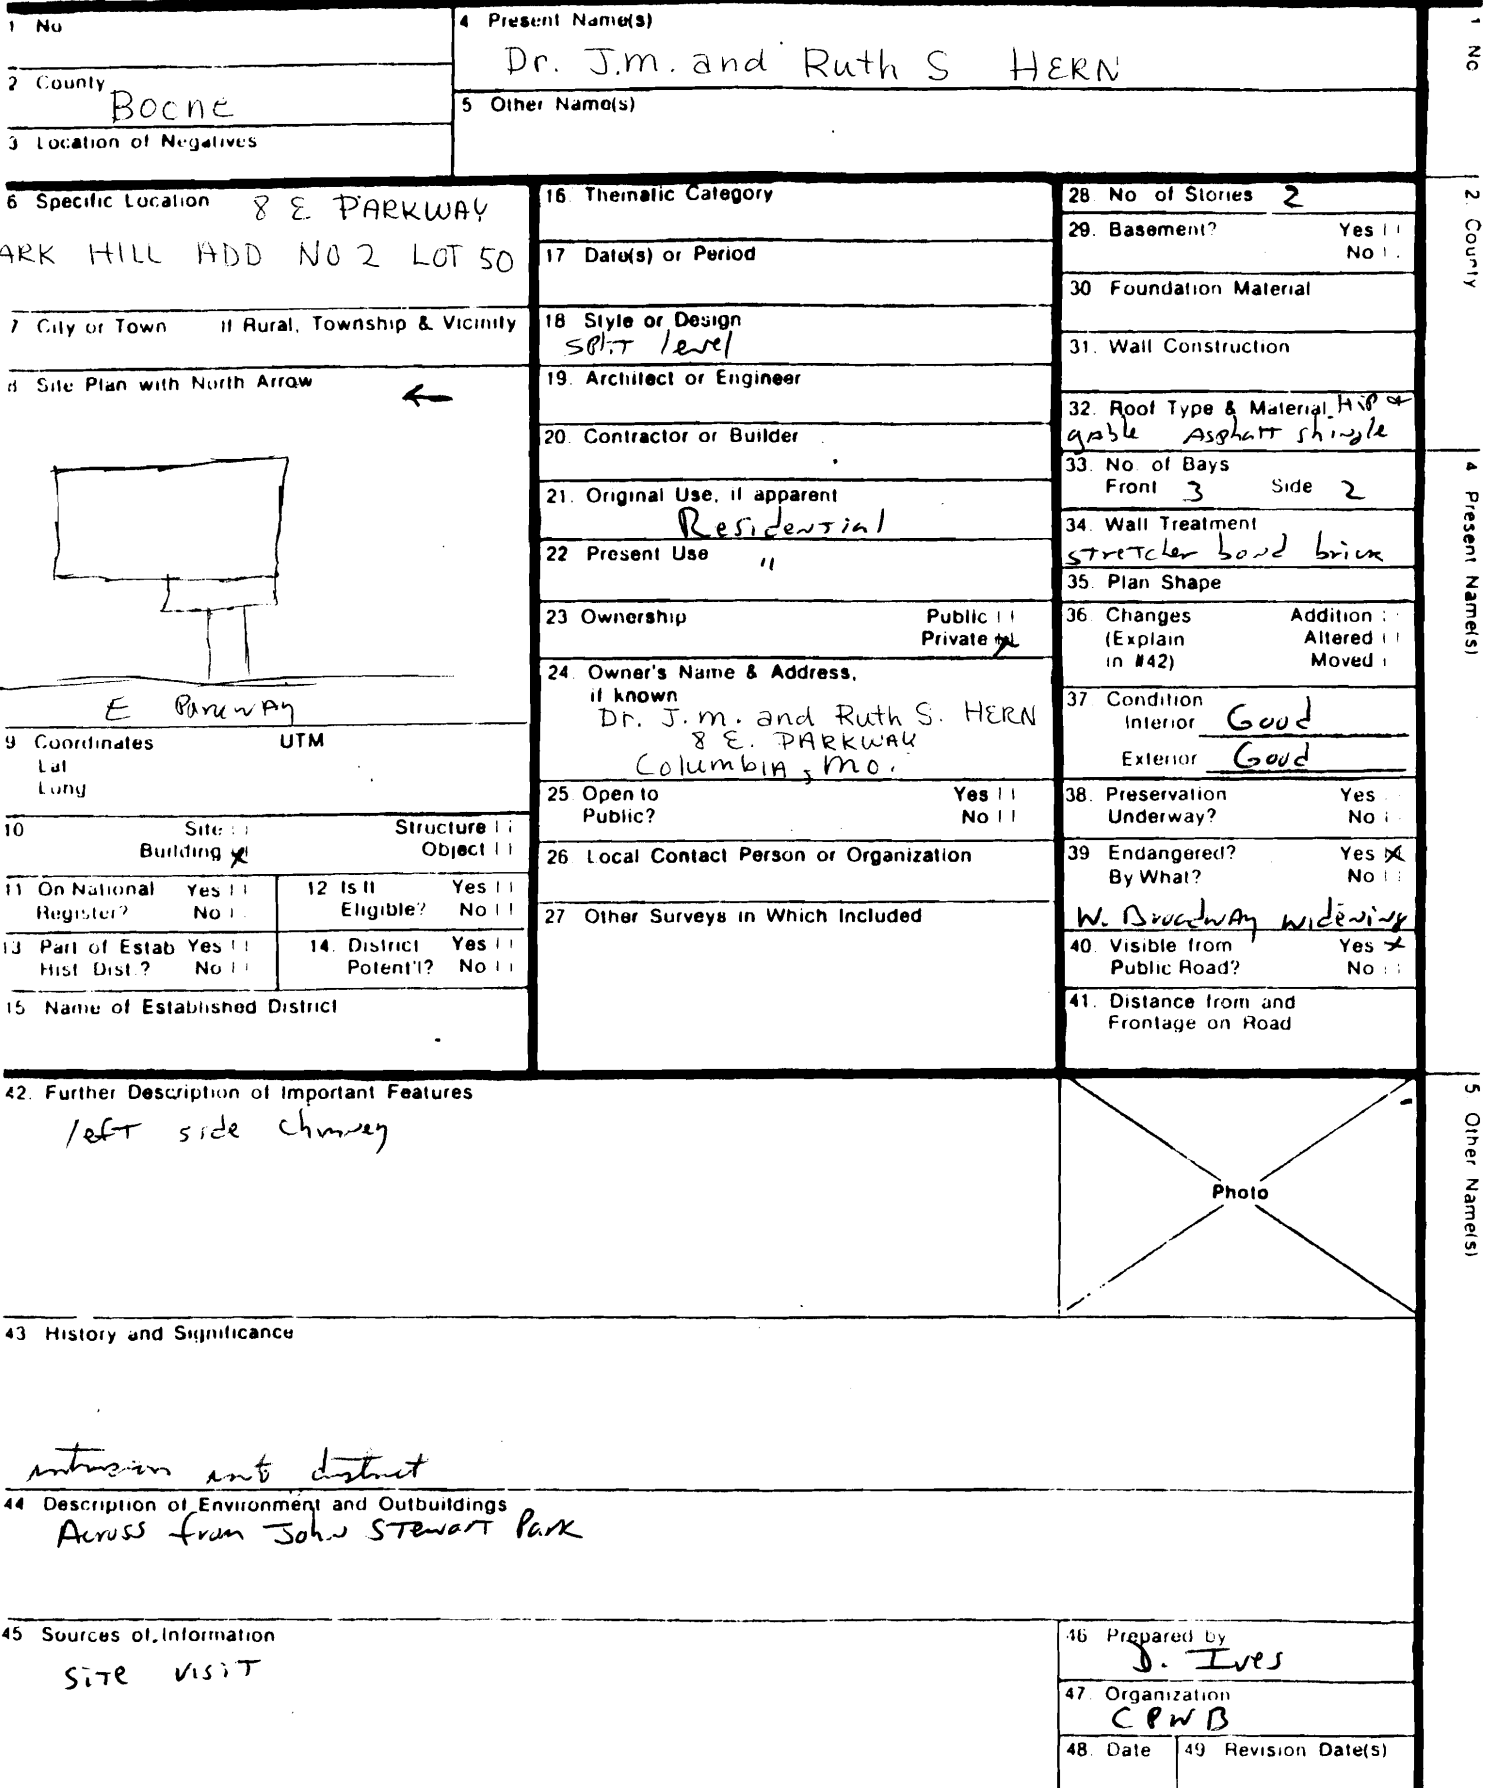 1 No
4 Present Name(s)
Dr. J.m. and Ruth S HERN
2 County
Boone
5 Other Name(s)
3 Location of Negatives
6 Specific Location 8 E. PARKWAY
ARK HILL ADD NO 2 LOT 50
7 City or Town If Rural, Township & Vicinity
8 Site Plan with North Arrow
E Parkway
9 Coordinates UTM
Lat
Long
10 Site Structure
Building x Object
11 On National Yes
Register? No
12 Is It Yes
Eligible? No
13 Part of Estab Yes
Hist Dist.? No
14. District Yes
Potent'l? No
15 Name of Established District
16. Thematic Category
17 Date(s) or Period
18 Style or Design
split level
19. Architect or Engineer
20. Contractor or Builder
21. Original Use, if apparent
Residential
22 Present Use "
23 Ownership Public
Private x
24. Owner's Name & Address,
if known
Dr. J.m. and Ruth S. HERN
8 E. PARKWAY
Columbia, Mo.
25 Open to Yes
Public? No
26 Local Contact Person or Organization
27 Other Surveys in Which Included
28. No of Stories 2
29. Basement? Yes
No
30 Foundation Material
31. Wall Construction
32. Roof Type & Material Hip &
gable Asphalt shingle
33. No. of Bays
Front 3 Side 2
34. Wall Treatment
stretcher bond brick
35. Plan Shape
36. Changes Addition
(Explain Altered
in #42) Moved
37. Condition
Interior Good
Exterior Good
38. Preservation Yes
Underway? No
39 Endangered? Yes x
By What? No
W. Broadway widening
40. Visible from Yes x
Public Road? No
41. Distance from and
Frontage on Road
42. Further Description of Important Features
left side chimney
Photo
43 History and Significance
intrusion into district
44 Description of Environment and Outbuildings
Across from John Stewart Park
45 Sources of Information
Site visit
46 Prepared by
D. Ives
47. Organization
CPWB
48. Date
49 Revision Date(s)
1 No
2 County
4 Present Name(s)
5 Other Name(s)